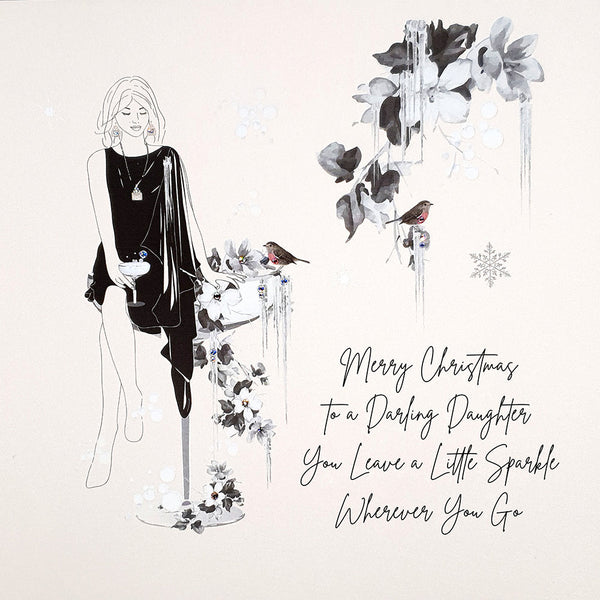 Merry Christmas
to a Darling Daughter
You Leave a Little Sparkle
Wherever You Go